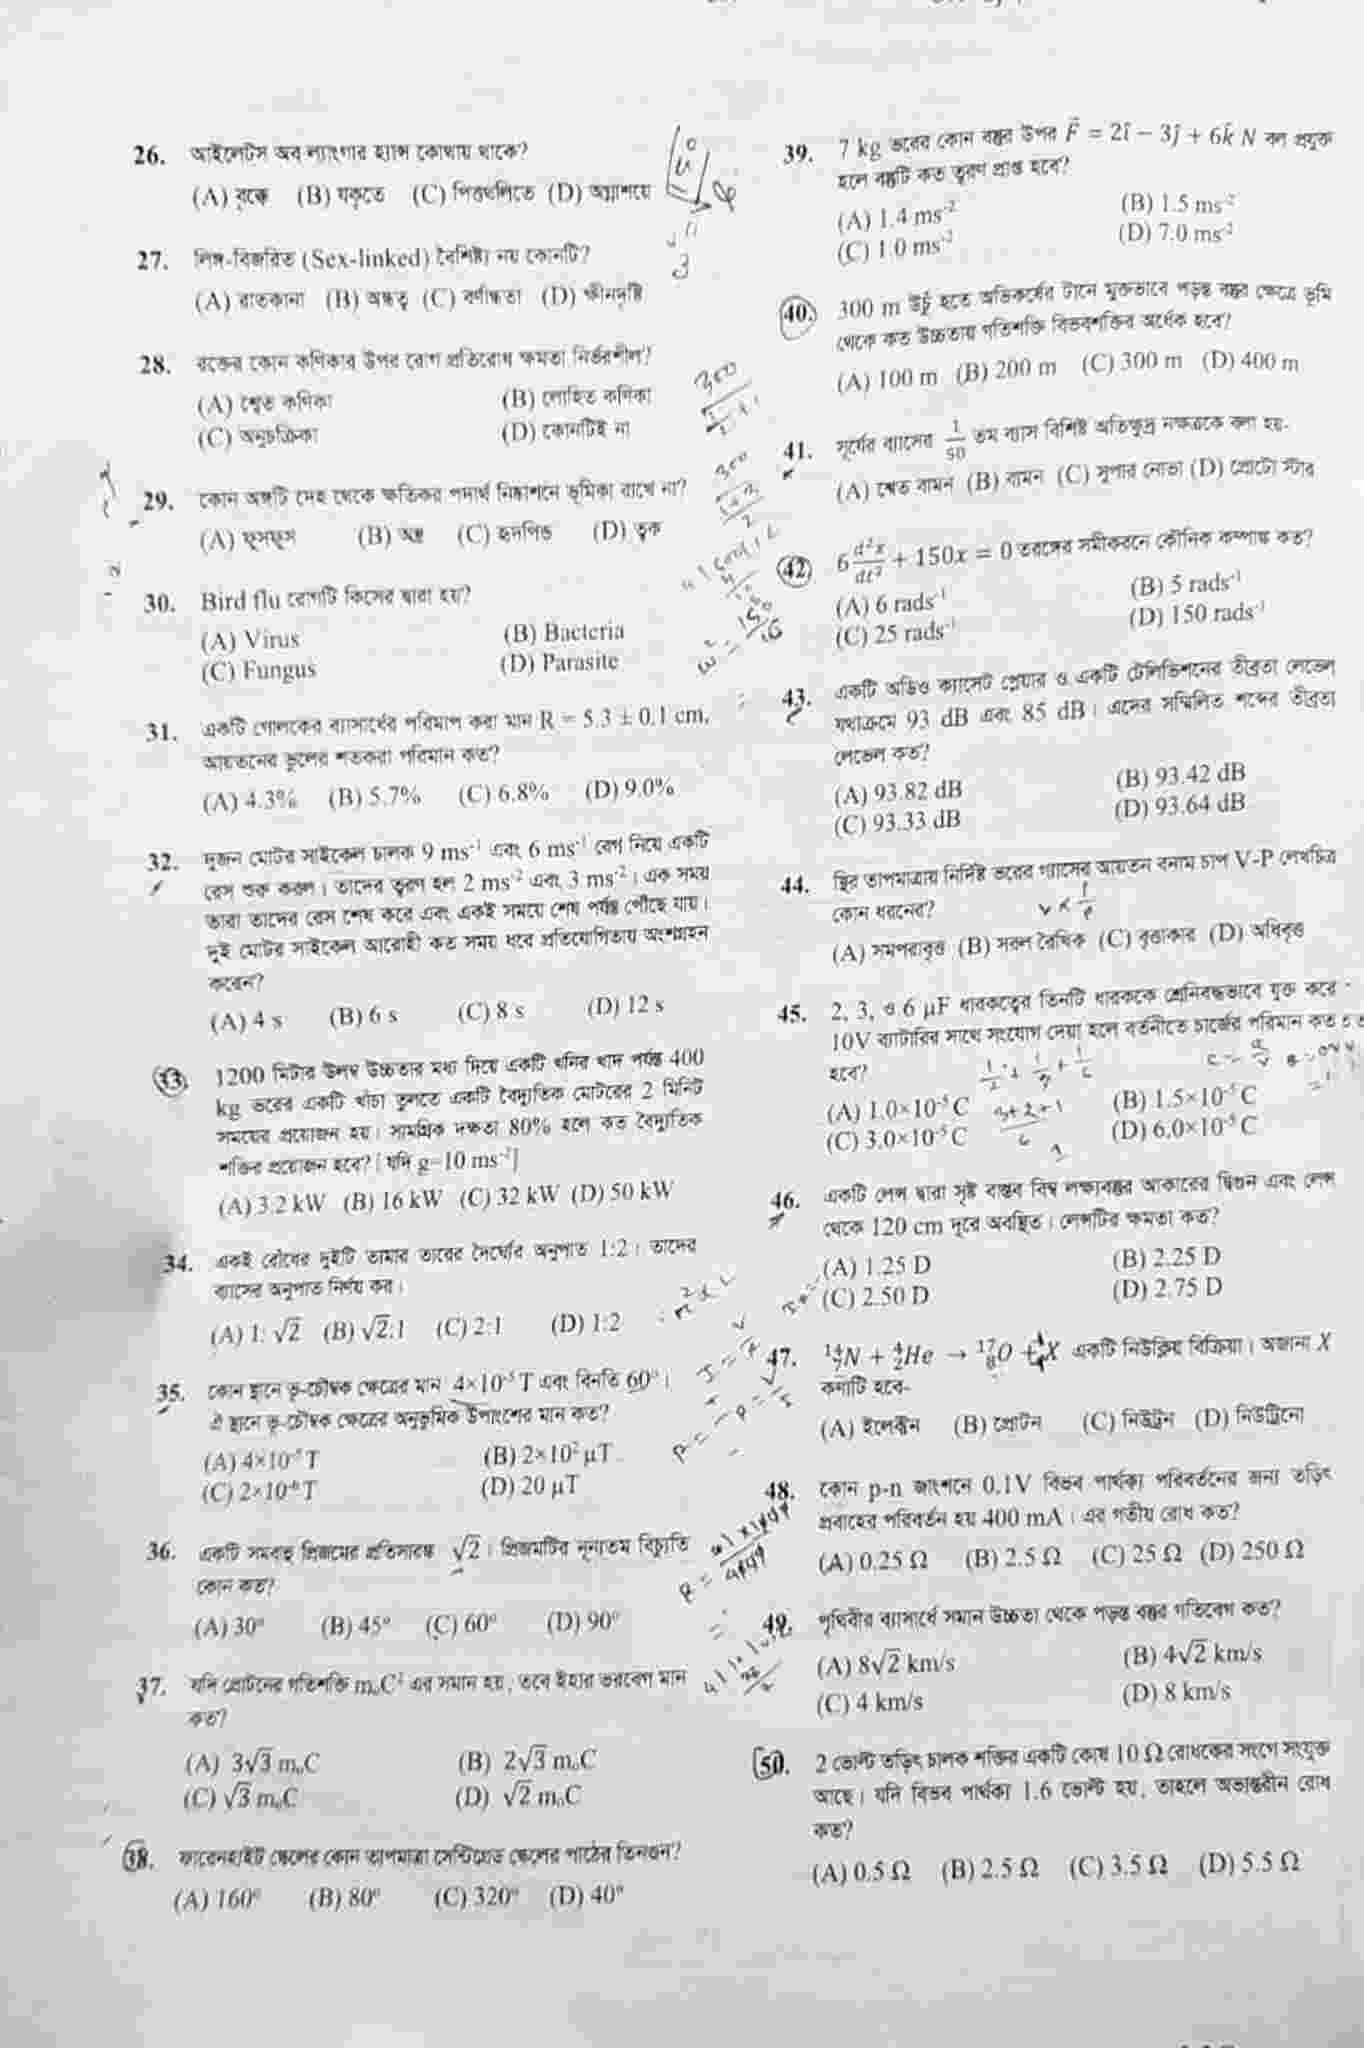 26. আইলেটস অব ল্যাংগার হ্যান্স কোথায় থাকে?
(A) বৃক্কে (B) যকৃতে (C) পিত্তথলিতে (D) অগ্ন্যাশয়ে
27. লিঙ্গ-বিজরিত (Sex-linked) বৈশিষ্ট্য নয় কোনটি?
(A) রাতকানা (B) অন্ধত্ব (C) বর্ণান্ধতা (D) ক্ষীনদৃষ্টি
28. রক্তের কোন কণিকার উপর রোগ প্রতিরোধ ক্ষমতা নির্ভরশীল?
(A) শ্বেত কণিকা (B) লোহিত কণিকা
(C) অনুচক্রিকা (D) কোনটিই না
29. কোন অঙ্গটি দেহ থেকে ক্ষতিকর পদার্থ নিষ্কাশনে ভূমিকা রাখে না?
(A) ফুসফুস (B) অন্ত্র (C) হৃদপিন্ড (D) ত্বক
30. Bird flu রোগটি কিসের দ্বারা হয়?
(A) Virus (B) Bacteria
(C) Fungus (D) Parasite
31. একটি গোলকের ব্যাসার্ধের পরিমাপ করা মান R = 5.3 ± 0.1 cm,
আয়তনের ভুলের শতকরা পরিমান কত?
(A) 4.3% (B) 5.7% (C) 6.8% (D) 9.0%
32. দুজন মোটর সাইকেল চালক 9 ms⁻¹ এবং 6 ms⁻¹ বেগ নিয়ে একটি
রেস শুরু করল। তাদের ত্বরণ হল 2 ms⁻² এবং 3 ms⁻²। এক সময়
তারা তাদের রেস শেষ করে এবং একই সময়ে শেষ পর্যন্ত পৌঁছে যায়।
দুই মোটর সাইকেল আরোহী কত সময় ধরে প্রতিযোগিতায় অংশগ্রহন
করেন?
(A) 4 s (B) 6 s (C) 8 s (D) 12 s
33. 1200 মিটার উলম্ব উচ্চতার মধ্য দিয়ে একটি খনির খাদ পর্যন্ত 400
kg ভরের একটি খাঁচা তুলতে একটি বৈদ্যুতিক মোটরের 2 মিনিট
সময়ের প্রয়োজন হয়। সামগ্রিক দক্ষতা 80% হলে কত বৈদ্যুতিক
শক্তির প্রয়োজন হবে? [যদি g=10 ms⁻²]
(A) 3.2 kW (B) 16 kW (C) 32 kW (D) 50 kW
34. একই রোধের দুইটি তামার তারের দৈর্ঘ্যের অনুপাত 1:2। তাদের
ব্যাসের অনুপাত নির্ণয় কর।
(A) 1: √2 (B) √2:1 (C) 2:1 (D) 1:2
35. কোন স্থানে ভূ-চৌম্বক ক্ষেত্রের মান 4×10⁻⁵ T এবং বিনতি 60°।
ঐ স্থানে ভূ-চৌম্বক ক্ষেত্রের অনুভূমিক উপাংশের মান কত?
(A) 4×10⁻⁵ T (B) 2×10² μT
(C) 2×10⁻⁶ T (D) 20 μT
36. একটি সমবাহু প্রিজমের প্রতিসারঙ্ক √2। প্রিজমটির নূন্যতম বিচ্যুতি
কোন কত?
(A) 30° (B) 45° (C) 60° (D) 90°
37. যদি প্রোটনের গতিশক্তি m₀C² এর সমান হয়, তবে ইহার ভরবেগ মান
কত?
(A) 3√3 m₀C (B) 2√3 m₀C
(C) √3 m₀C (D) √2 m₀C
38. ফারেনহাইট স্কেলের কোন তাপমাত্রা সেন্টিগ্রেড স্কেলের পাঠের তিনগুন?
(A) 160° (B) 80° (C) 320° (D) 40°
39. 7 kg ভরের কোন বস্তুর উপর F⃗ = 2î − 3ĵ + 6k̂ N বল প্রযুক্ত
হলে বস্তুটি কত ত্বরণ প্রাপ্ত হবে?
(A) 1.4 ms⁻² (B) 1.5 ms⁻²
(C) 1.0 ms⁻² (D) 7.0 ms⁻²
40. 300 m উঁচু হতে অভিকর্ষের টানে মুক্তভাবে পড়ন্ত বস্তুর ক্ষেত্রে ভূমি
থেকে কত উচ্চতায় গতিশক্তি বিভবশক্তির অর্ধেক হবে?
(A) 100 m (B) 200 m (C) 300 m (D) 400 m
41. সূর্যের ব্যাসের 1/50 তম ব্যাস বিশিষ্ট অতিক্ষুদ্র নক্ষত্রকে বলা হয়-
(A) শ্বেত বামন (B) বামন (C) সুপার নোভা (D) প্রোটো স্টার
42. 6 d²x/dt² + 150x = 0 তরঙ্গের সমীকরনে কৌনিক কম্পাঙ্ক কত?
(A) 6 rads⁻¹ (B) 5 rads⁻¹
(C) 25 rads⁻¹ (D) 150 rads⁻¹
43. একটি অডিও ক্যাসেট প্লেয়ার ও একটি টেলিভিশনের তীব্রতা লেভেল
যথাক্রমে 93 dB এবং 85 dB। এদের সম্মিলিত শব্দের তীব্রতা
লেভেল কত?
(A) 93.82 dB (B) 93.42 dB
(C) 93.33 dB (D) 93.64 dB
44. স্থির তাপমাত্রায় নির্দিষ্ট ভরের গ্যাসের আয়তন বনাম চাপ V-P লেখচিত্র
কোন ধরনের?
(A) সমপরাবৃত্ত (B) সরল রৈখিক (C) বৃত্তাকার (D) অধিবৃত্ত
45. 2, 3, ও 6 μF ধারকত্বের তিনটি ধারককে শ্রেনিবদ্ধভাবে যুক্ত করে
10V ব্যাটারির সাথে সংযোগ দেয়া হলে বর্তনীতে চার্জের পরিমান কত
হবে?
(A) 1.0×10⁻⁵ C (B) 1.5×10⁻⁵ C
(C) 3.0×10⁻⁵ C (D) 6.0×10⁻⁵ C
46. একটি লেন্স দ্বারা সৃষ্ট বাস্তব বিম্ব লক্ষ্যবস্তুর আকারের দ্বিগুন এবং লেন্স
থেকে 120 cm দূরে অবস্থিত। লেন্সটির ক্ষমতা কত?
(A) 1.25 D (B) 2.25 D
(C) 2.50 D (D) 2.75 D
47. ¹⁴₇N + ⁴₂He → ¹⁷₈O + X একটি নিউক্লিয় বিক্রিয়া। অজানা X
কণাটি হবে-
(A) ইলেক্ট্রন (B) প্রোটন (C) নিউট্রন (D) নিউট্রিনো
48. কোন p-n জাংশনে 0.1V বিভব পার্থক্য পরিবর্তনের জন্য তড়িৎ
প্রবাহের পরিবর্তন হয় 400 mA। এর গতীয় রোধ কত?
(A) 0.25 Ω (B) 2.5 Ω (C) 25 Ω (D) 250 Ω
49. পৃথিবীর ব্যাসার্ধে সমান উচ্চতা থেকে পড়ন্ত বস্তুর গতিবেগ কত?
(A) 8√2 km/s (B) 4√2 km/s
(C) 4 km/s (D) 8 km/s
50. 2 ভোল্ট তড়িৎ চালক শক্তির একটি কোষ 10 Ω রোধকের সংগে সংযুক্ত
আছে। যদি বিভব পার্থক্য 1.6 ভোল্ট হয়, তাহলে অভ্যন্তরীন রোধ
কত?
(A) 0.5 Ω (B) 2.5 Ω (C) 3.5 Ω (D) 5.5 Ω